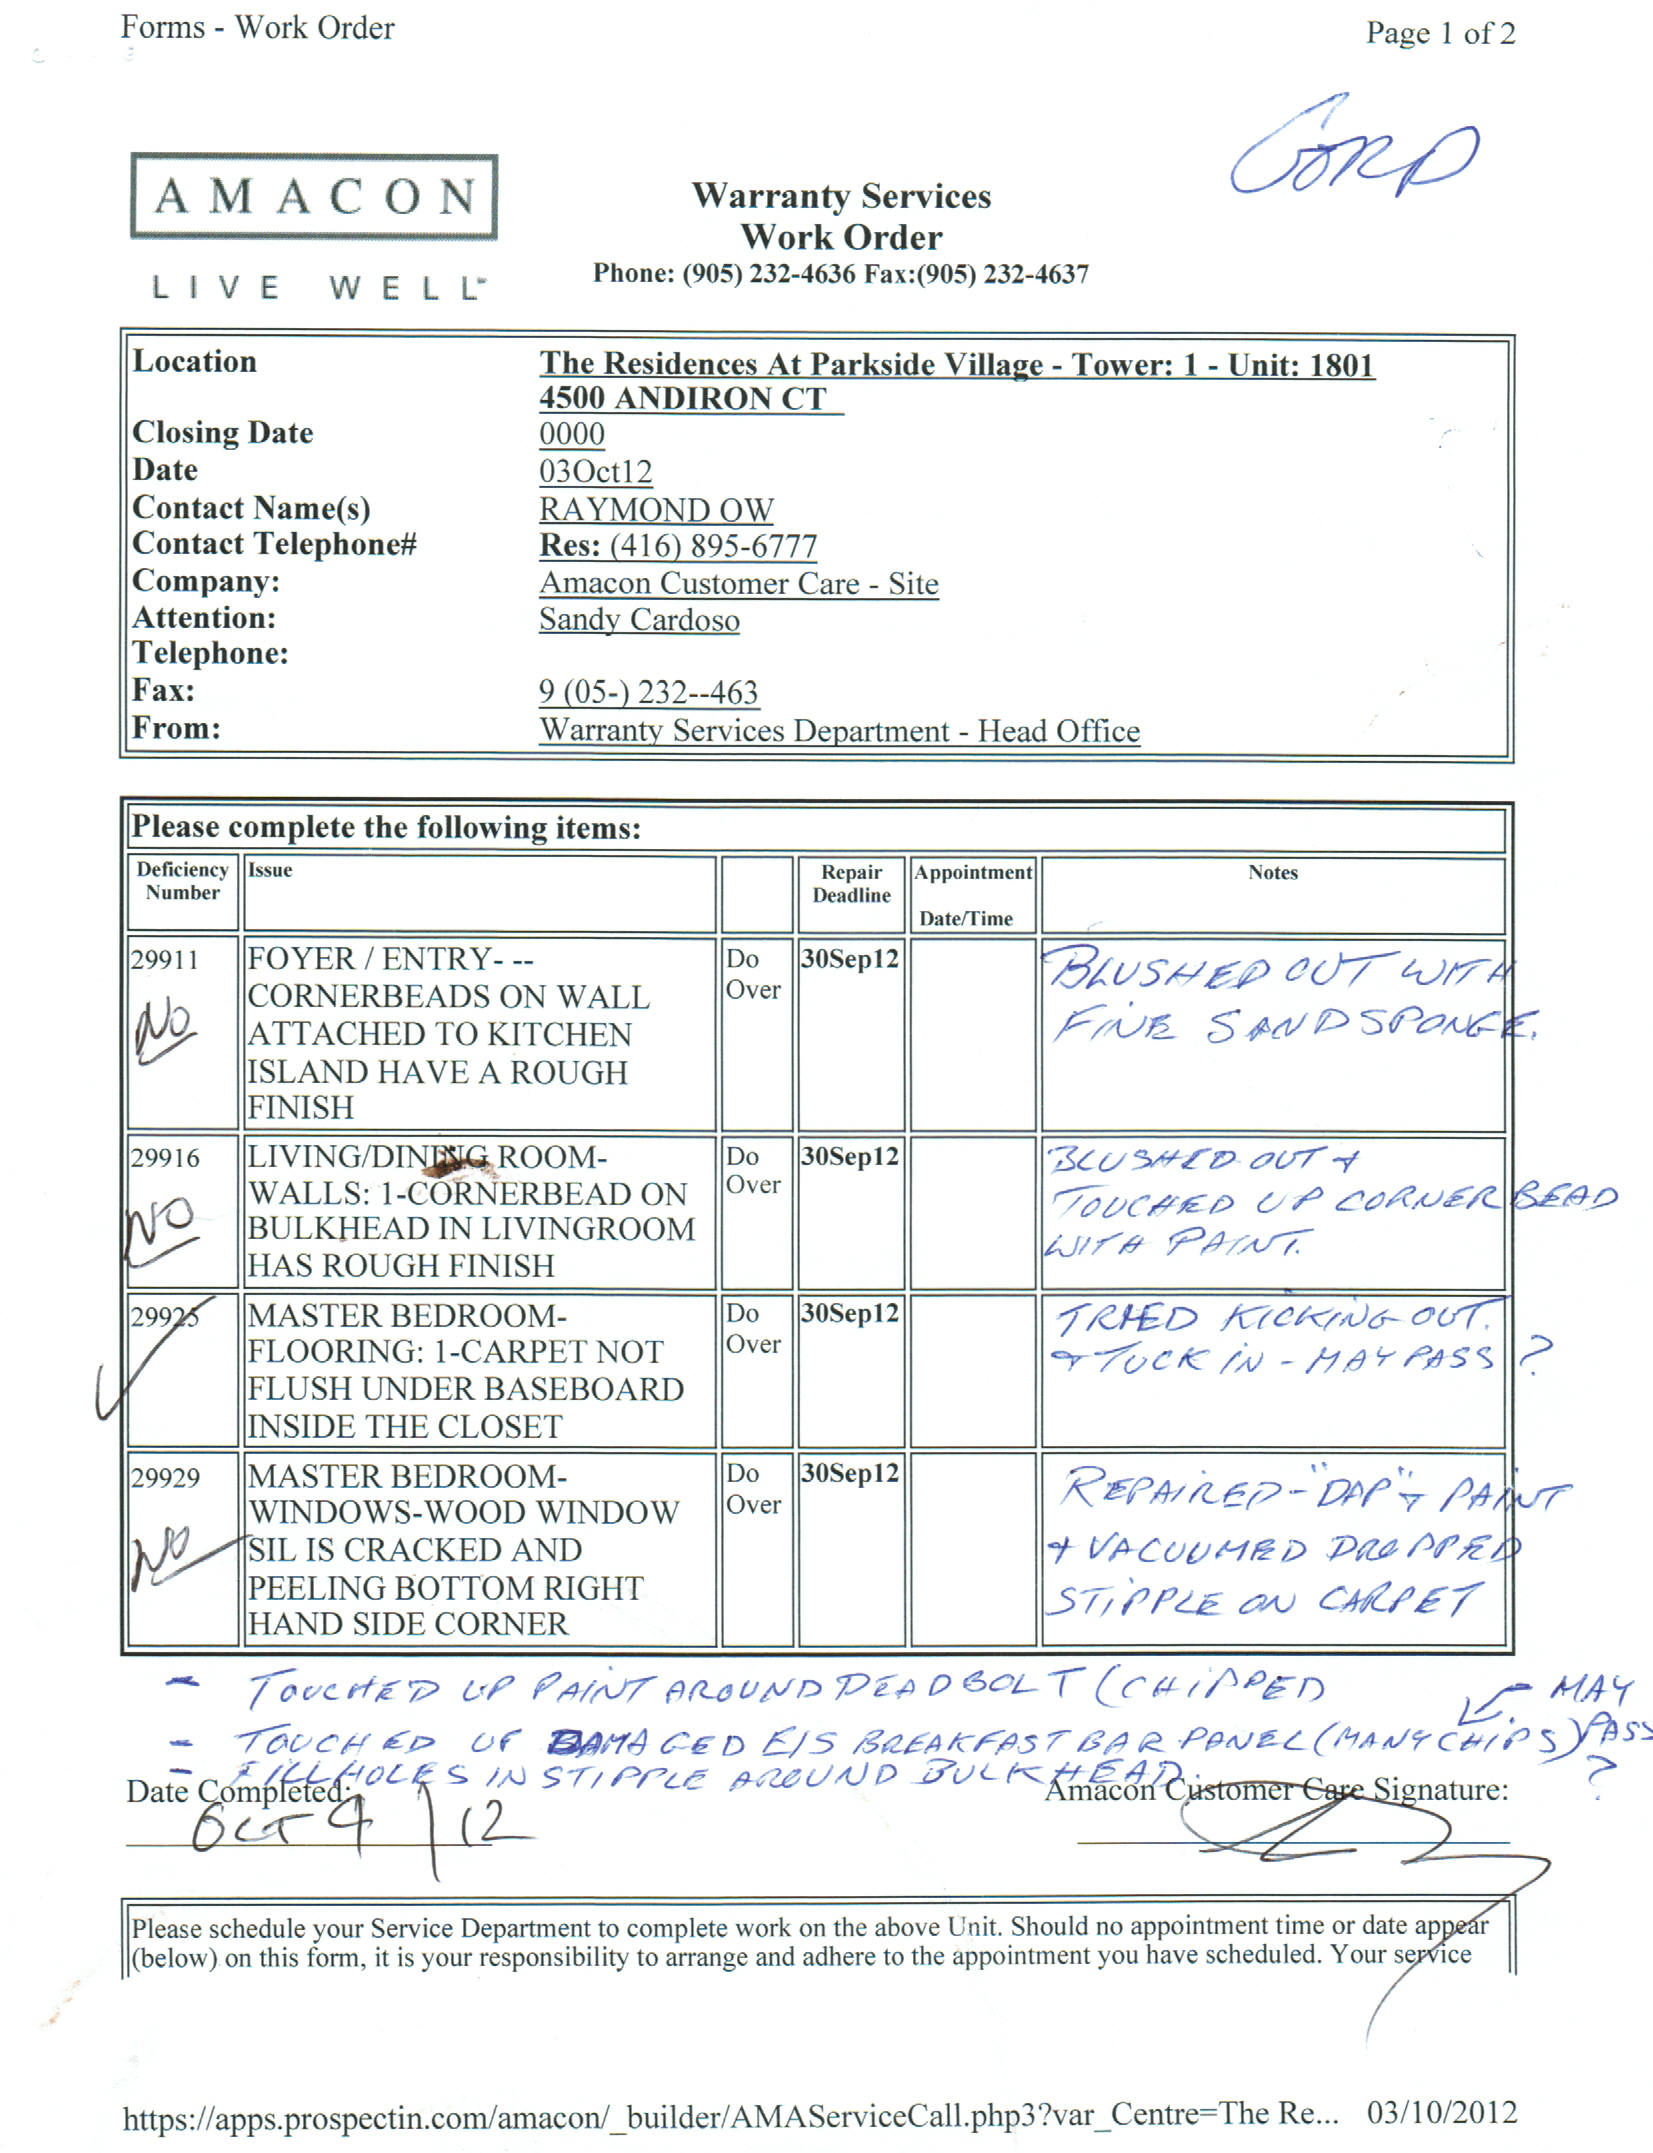 Forms - Work Order
Page 1 of 2
CORP
AMACON
LIVE WELL
Warranty Services
Work Order
Phone: (905) 232-4636 Fax:(905) 232-4637
Location The Residences At Parkside Village - Tower: 1 - Unit: 1801
4500 ANDIRON CT
Closing Date 0000
Date 03Oct12
Contact Name(s) RAYMOND OW
Contact Telephone# Res: (416) 895-6777
Company: Amacon Customer Care - Site
Attention: Sandy Cardoso
Telephone:
Fax: 9 (05-) 232--463
From: Warranty Services Department - Head Office
Please complete the following items:
Deficiency Number Issue Repair Deadline Appointment Date/Time Notes
29911
NO
FOYER / ENTRY- --
CORNERBEADS ON WALL
ATTACHED TO KITCHEN
ISLAND HAVE A ROUGH
FINISH
Do
Over
30Sep12
BLUSHED OUT WITH
FINE SANDSPONGE.
29916
NO
LIVING/DINING ROOM-
WALLS: 1-CORNERBEAD ON
BULKHEAD IN LIVINGROOM
HAS ROUGH FINISH
Do
Over
30Sep12
BLUSHED OUT +
TOUCHED UP CORNER BEAD
WITH PAINT.
29925
MASTER BEDROOM-
FLOORING: 1-CARPET NOT
FLUSH UNDER BASEBOARD
INSIDE THE CLOSET
Do
Over
30Sep12
TRIED KICKING OUT.
+ TUCK IN - MAY PASS ?
29929
NO
MASTER BEDROOM-
WINDOWS-WOOD WINDOW
SIL IS CRACKED AND
PEELING BOTTOM RIGHT
HAND SIDE CORNER
Do
Over
30Sep12
REPAIRED - "DAP" + PAINT
+ VACUUMED DROPPED
STIPPLE ON CARPET
- TOUCHED UP PAINT AROUND DEADBOLT (CHIPPED
- TOUCHED UP DAMAGED E/S BREAKFAST BAR PANEL (MANY CHIPS) - MAY PASS ?
- FILL HOLES IN STIPPLE AROUND BULKHEAD
Date Completed:
OCT 4 / 12
Amacon Customer Care Signature:
Please schedule your Service Department to complete work on the above Unit. Should no appointment time or date appear
(below) on this form, it is your responsibility to arrange and adhere to the appointment you have scheduled. Your service
https://apps.prospectin.com/amacon/_builder/AMAServiceCall.php3?var_Centre=The Re... 03/10/2012